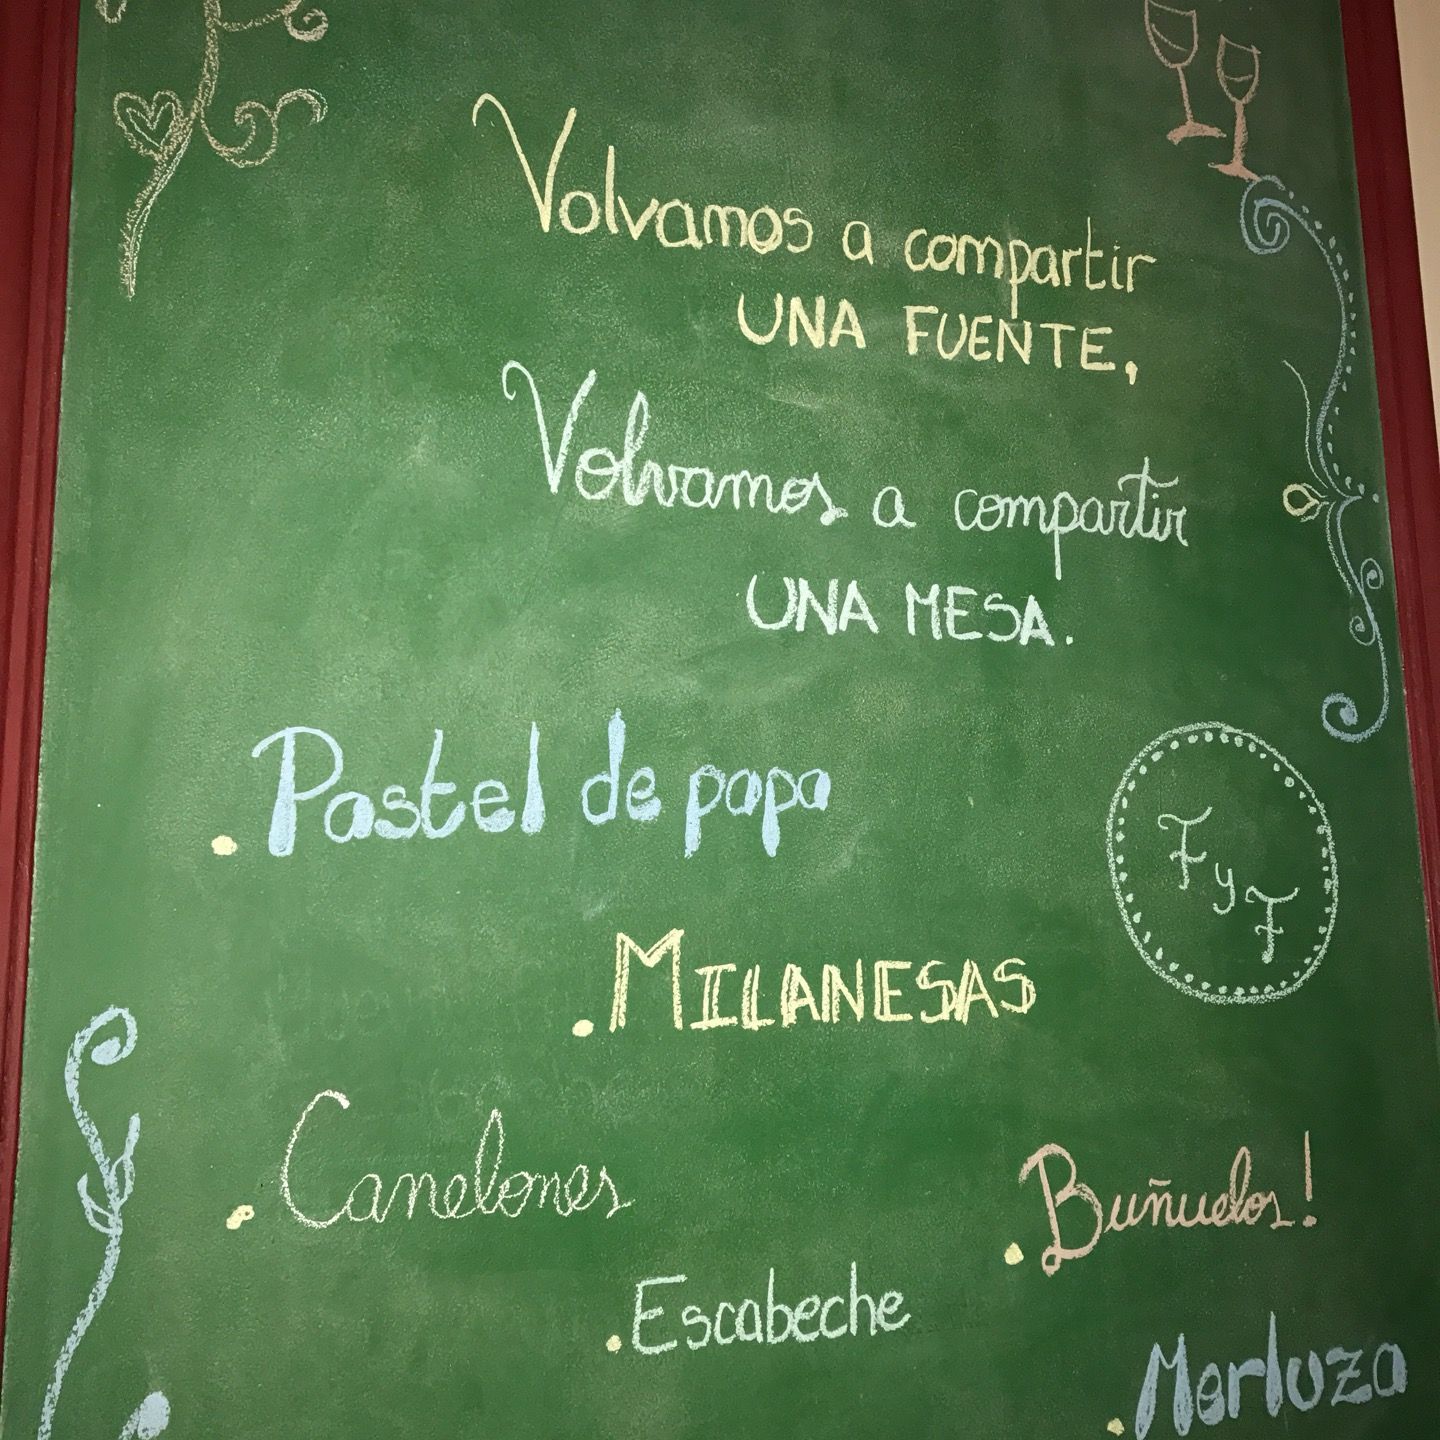 Volvamos a compartir
UNA FUENTE,
Volvamos a compartir
UNA MESA.
. Pastel de papa
F y F
. MILANESAS
. Canelones
. Buñuelos!
. Escabeche
. Merluza